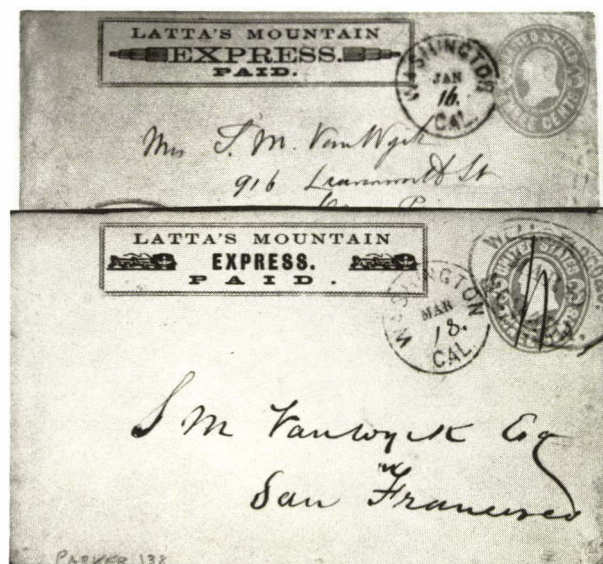 LATTA'S MOUNTAIN
EXPRESS.
PAID.
WASHINGTON
JAN
16.
CAL.
UNITED STATES
THREE CENTS
Mrs S. M. Van Wyck
916
St
LATTA'S MOUNTAIN
EXPRESS.
PAID.
WASHINGTON
MAR
18.
CAL.
WELLS FARGO & CO.
UNITED STATES
S M Vanwyck Esq
San Francisco
PARKER 138